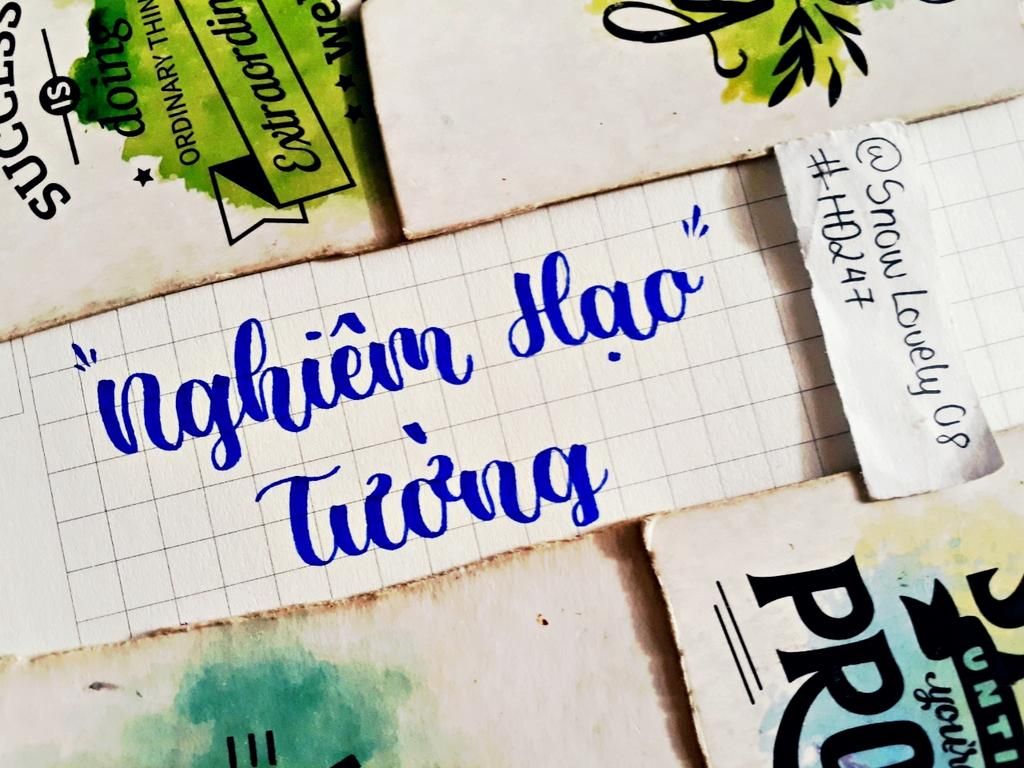 SUCCESS
IS
doing
ORDINARY
Extraordin
"Nghiêm Hạo"
Tường
@Snow Lovely 08
#HĐ247
PRO
UNTI
you're